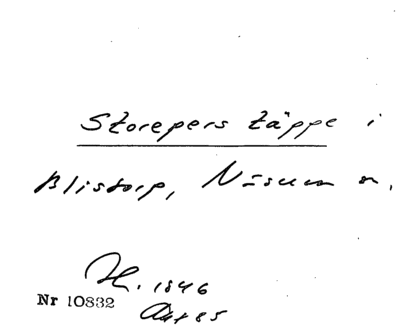 Storepers täppe i
Blistorp, Näsum s.
H. 1846
Nr 10832
Akt 85